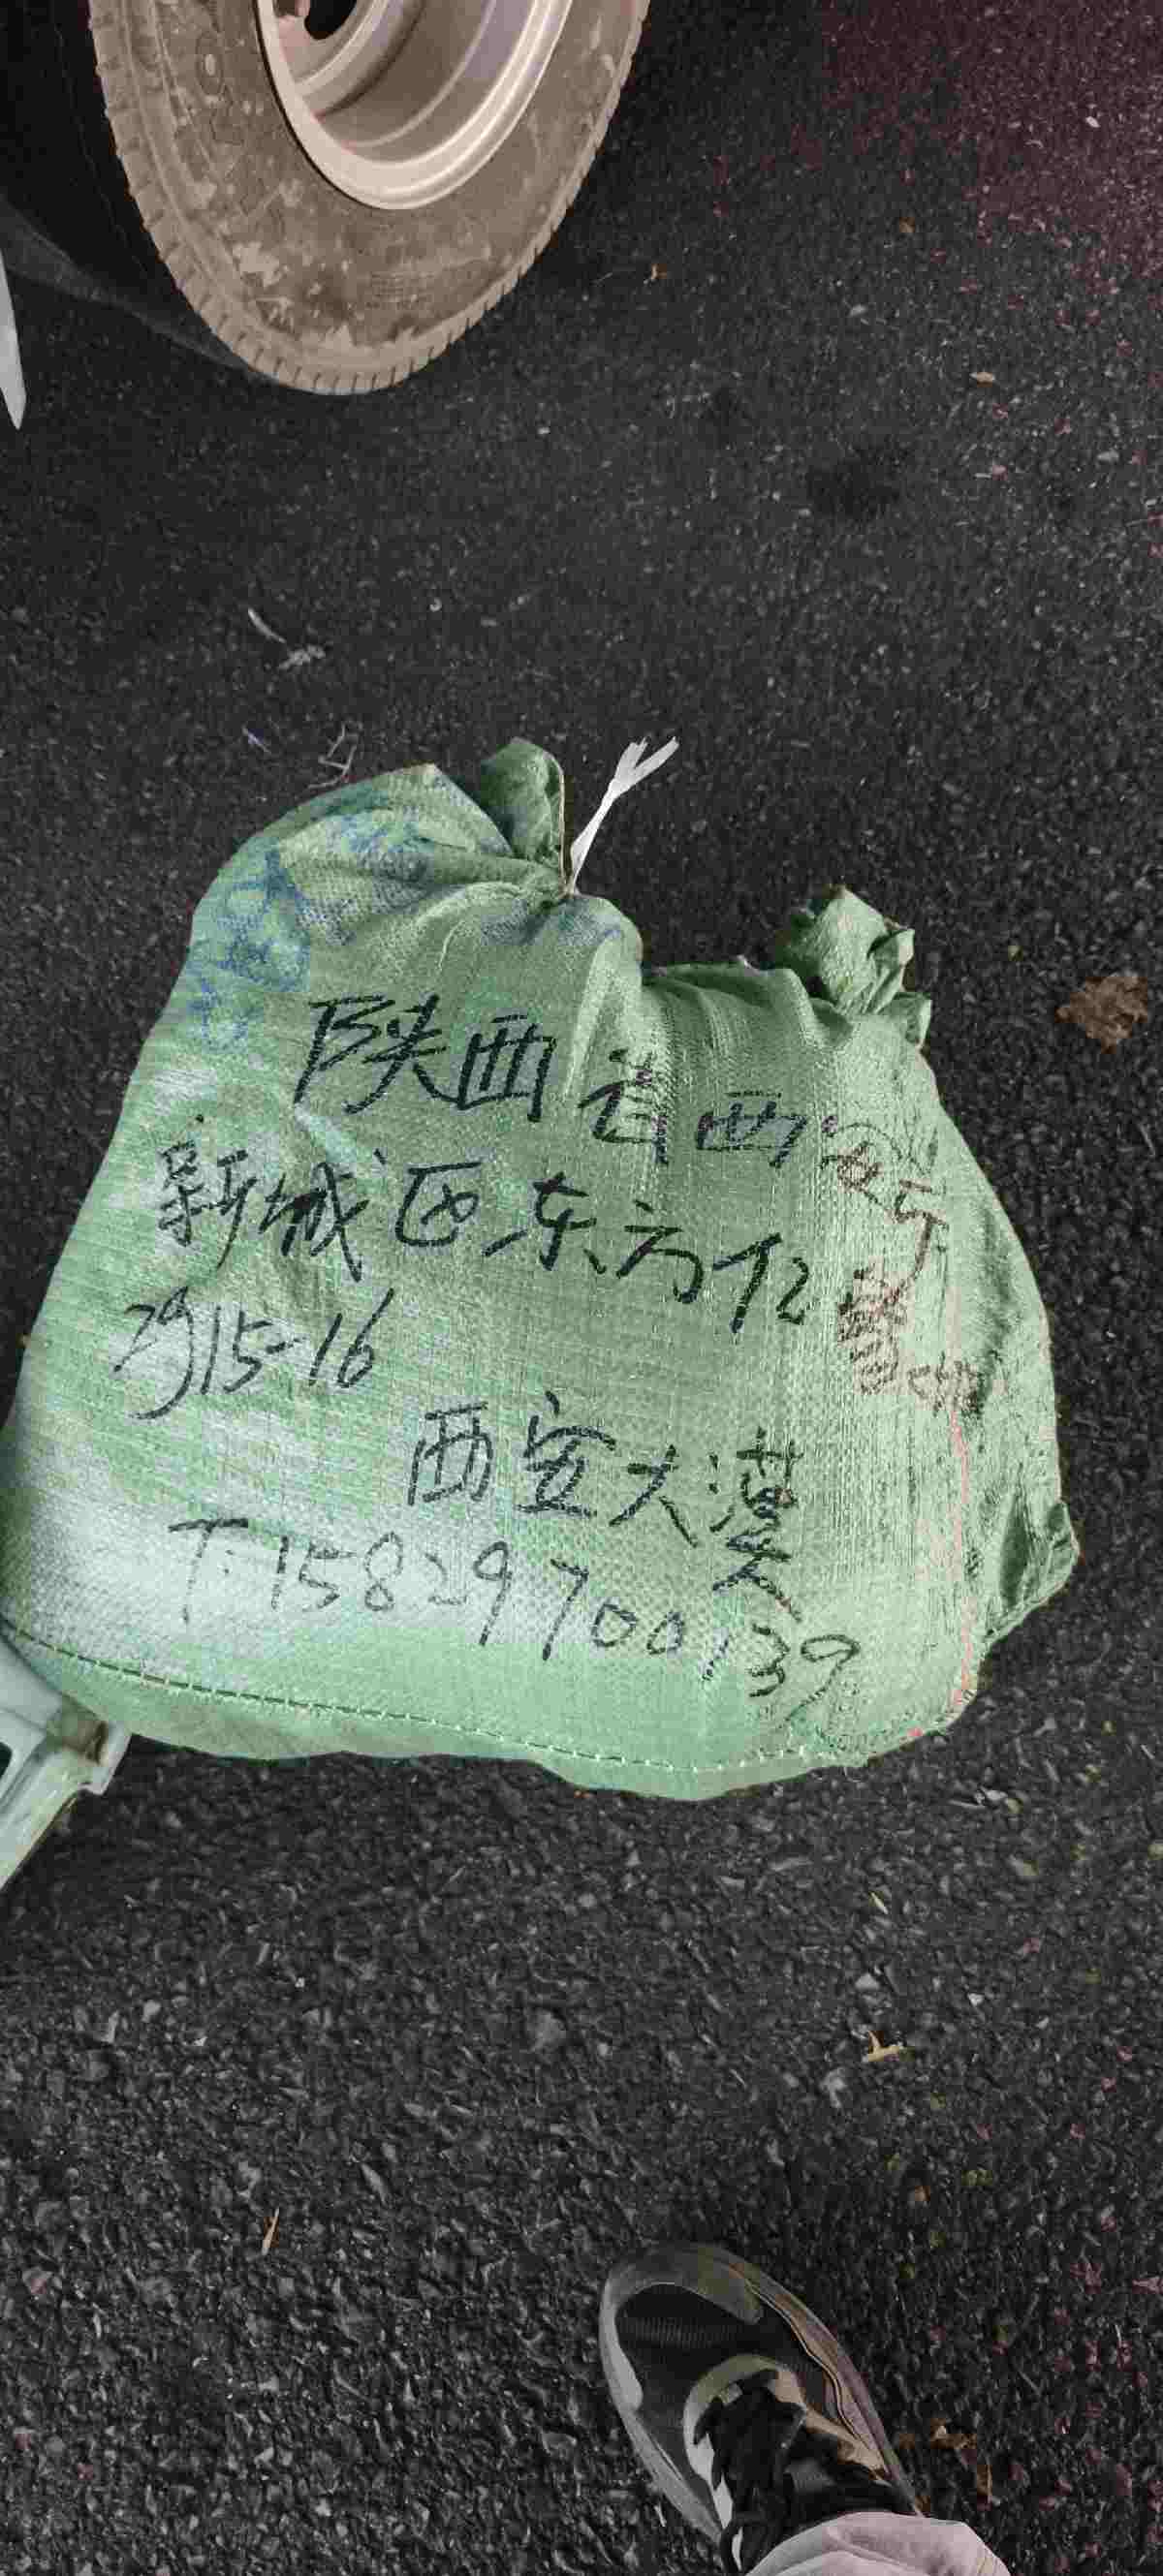 陕西省西安市
新城区东方亿
2915-16
西安大漠
T:15829700139